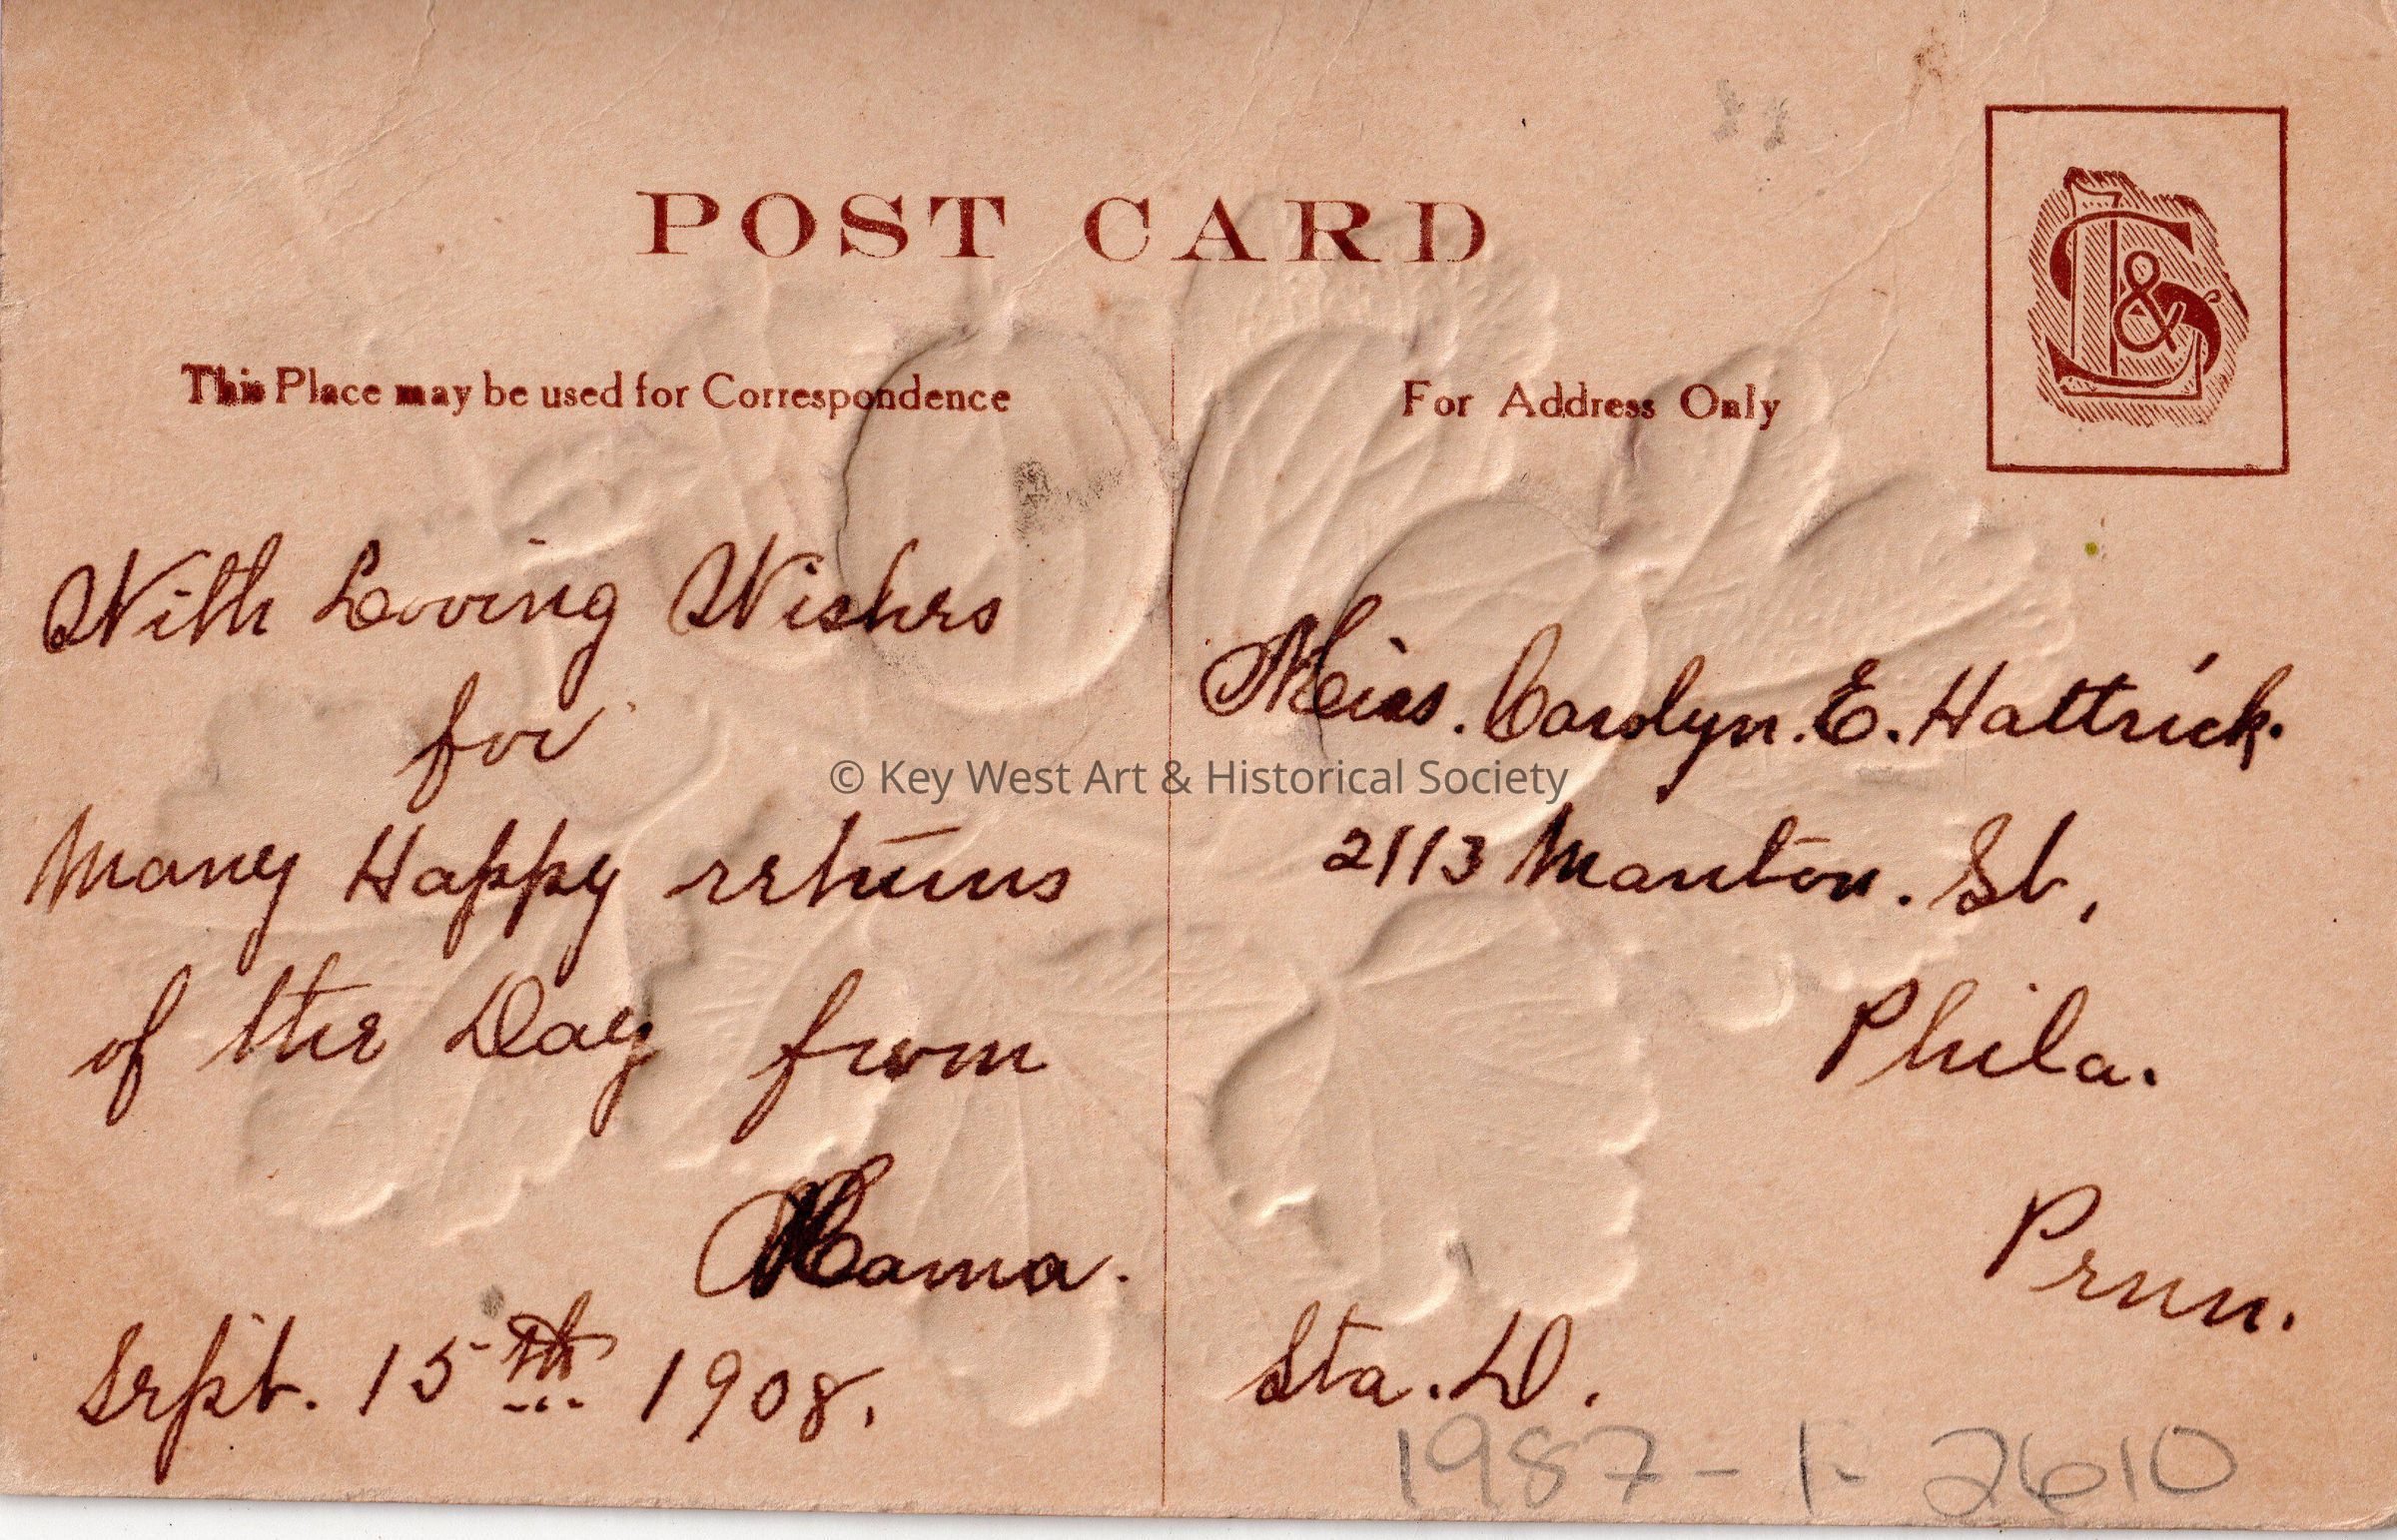 POST CARD
This Place may be used for Correspondence
For Address Only
With Loving Wishes
for
Many Happy returns
of the Day from
Mama.
Sept. 15th 1908.
Miss. Carolyn. E. Hattrick.
2113 Manton. St,
Phila.
Penn.
Sta. D.
1987-1-2610
© Key West Art & Historical Society